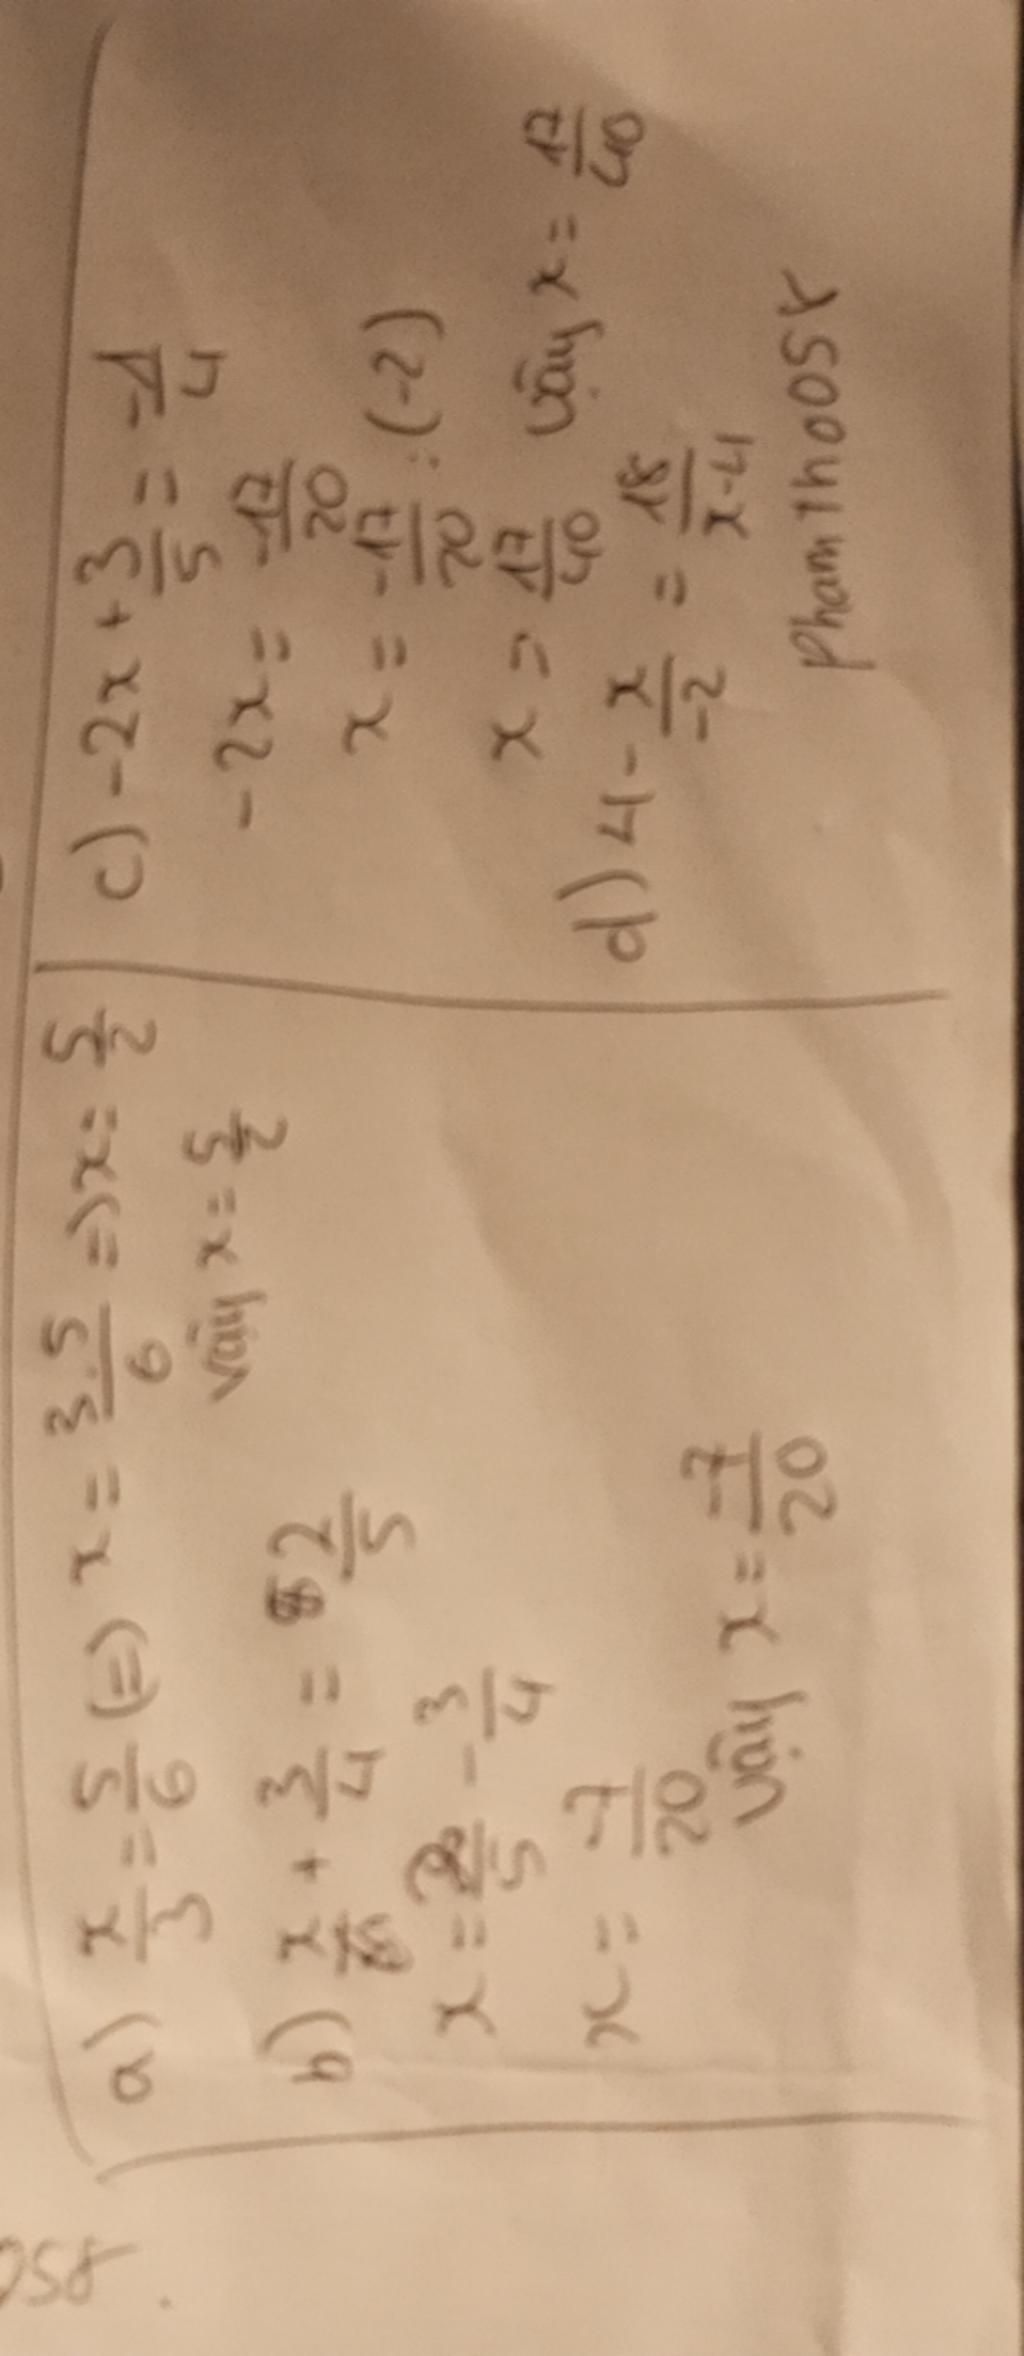 058.
a) x/3 = 5/6 (=) x = 3.5/6 => x = 5/2
vậy x = 5/2
b) x + 3/4 = 2/5
x = 2/5 - 3/4
x = -7/20
vậy x = -7/20
c) -2x + 3/5 = -1/4
-2x = -17/20
x = -17/20 : (-2)
x = 17/40 vậy x = 17/40
d) 4 - x/-2 = 18/x-4
PhamTh0058